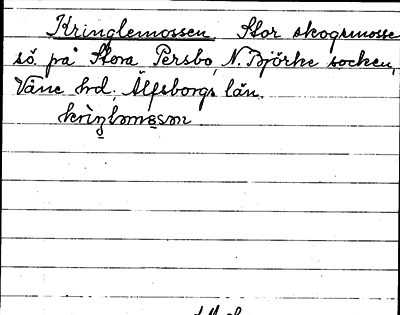 Kringlemossen. Stor skogsmosse
sö. på Stora Persbo, N. Björke socken,
Väne hd, Älfsborgs län.